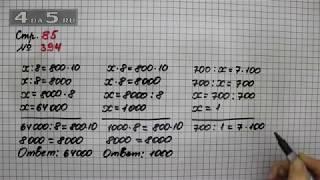 4 da 5 .ru
Стр. 85
№ 394
x:8=800·10
x:8=8000
x=8000·8
x=64000
64000:8=800·10
8000=8000
Ответ: 64000
x·8=800·10
x·8=8000
x=8000:8
x=1000
1000·8=800·10
8000=8000
Ответ: 1000
700:x=7·100
700:x=700
x=700:700
x=1
700:1=7·100